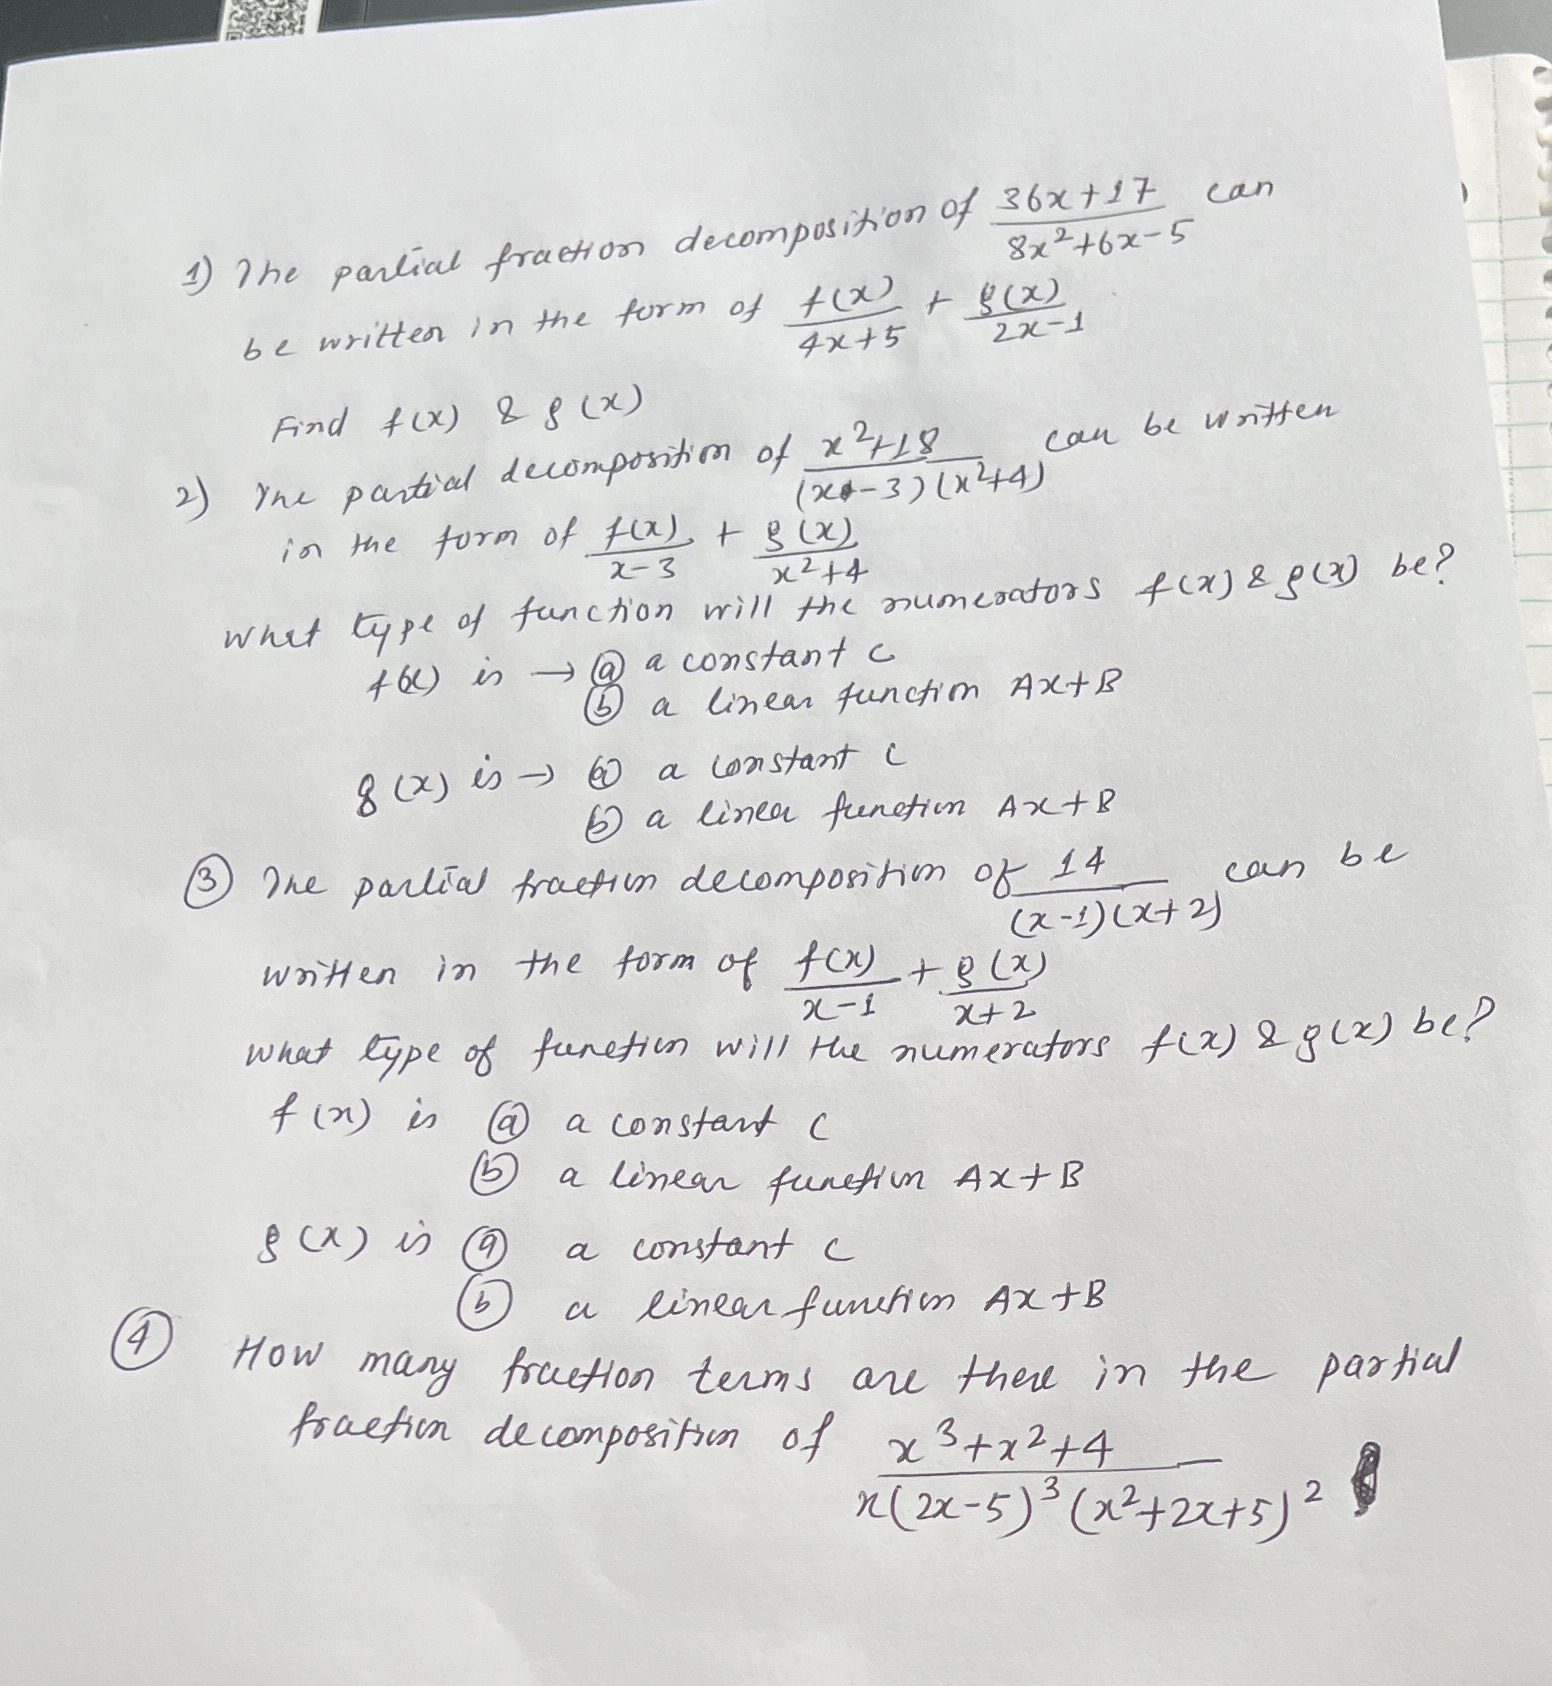 1) The partial fraction decomposition of (36x+17)/(8x²+6x-5) can
be written in the form of f(x)/(4x+5) + g(x)/(2x-1)
Find f(x) & g(x)
2) The partial decomposition of (x²+18)/((x-3)(x²+4)) can be written
in the form of f(x)/(x-3) + g(x)/(x²+4)
What type of function will the numerators f(x) & g(x) be?
f(x) is → ⓐ a constant C
ⓑ a linear function Ax+B
g(x) is → ⓐ a constant C
ⓑ a linea function Ax+B
③ The partial fraction decomposition of 14/((x-1)(x+2)) can be
written in the form of f(x)/(x-1) + g(x)/(x+2)
What type of function will the numerators f(x) & g(x) be?
f(x) is ⓐ a constant C
ⓑ a linear function Ax+B
g(x) is ⓐ a constant C
ⓑ a linear function Ax+B
④ How many fraction terms are there in the partial
fraction decomposition of (x³+x²+4)/(x(2x-5)³(x²+2x+5)²)